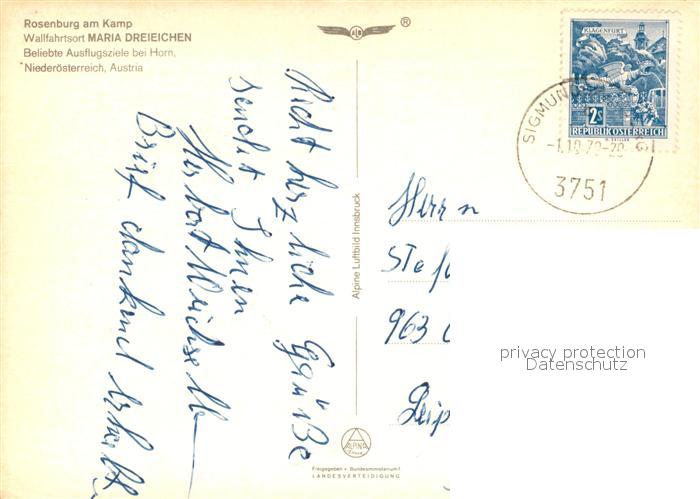 Rosenburg am Kamp
Wallfahrtsort MARIA DREIEICHEN
Beliebte Ausflugsziele bei Horn,
Niederösterreich, Austria
ALB
®
KLAGENFURT
2S
REPUBLIK ÖSTERREICH
SIGMUND
-1.10.70-20
3751
Recht herzliche Grüße
sendet Ihnen
Herbert
Brief dankend erhalt
Alpine Luftbild Innsbruck
Herrn
Stef
963
Leip
ALPINA
Freigegeben v. Bundesministerium f.
LANDESVERTEIDIGUNG
privacy protection
Datenschutz